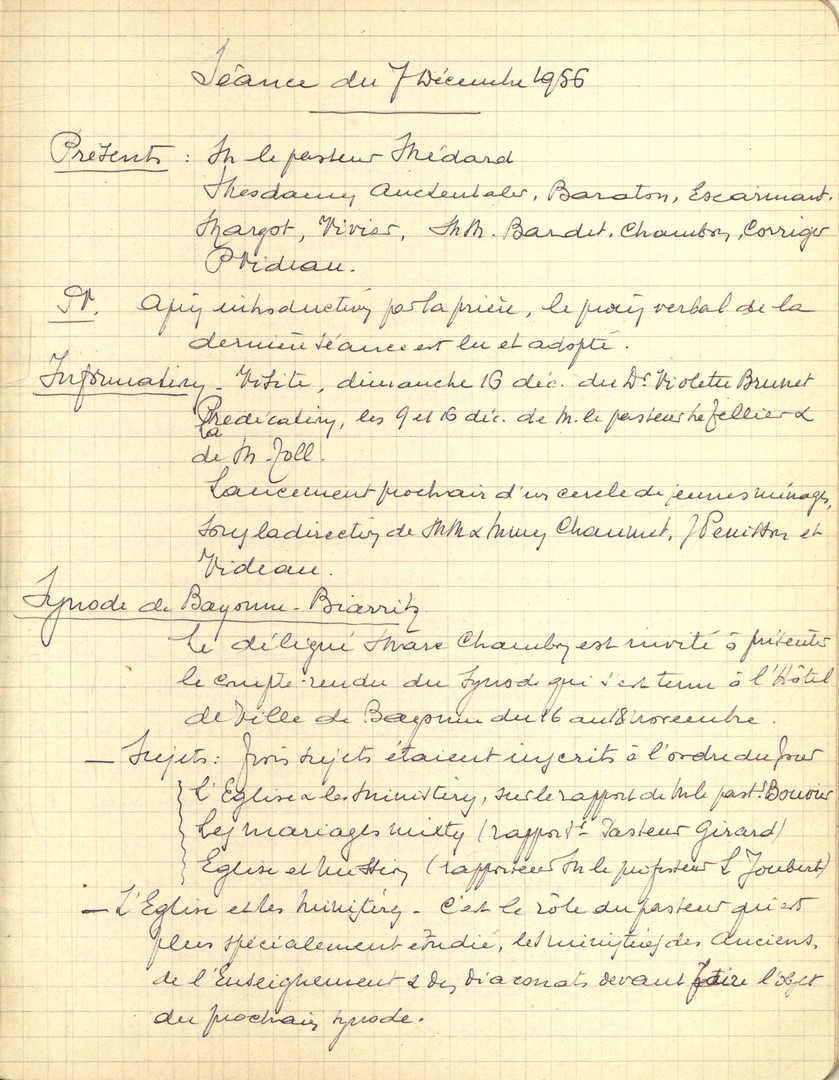 Séance du 7 Décembre 1956
Présents : M le pasteur Médard
Mesdames Auckenthaler, Baraton, Escarmant,
Margot, Vivier, MM. Bardet, Chambon, Corriger
P Videau.
PV. Après introduction par la prière, le procès verbal de la
dernière séance est lu et adopté.
Informations - Visite, dimanche 16 déc. du Dr Violette Brunet
Prédications, les 9 et 16 déc. de M. le pasteur Le Tellier &
de M. Joll.
Lancement prochain d'un cercle de jeunes ménages,
sous la direction de MM & Mmes Chaumet, J Penisson et
Videau.
Synode de Bayonne-Biarritz
Le délégué Marc Chambon est invité à présenter
le compte-rendu du Synode qui s'est tenu à l'Hôtel
de Ville de Bayonne du 16 au 18 novembre.
— Sujets : Trois sujets étaient inscrits à l'ordre du jour
L'Eglise & les ministères, sur le rapport de M le past.r Bouvier
Les mariages mixtes (rapport.r - Pasteur Girard)
Eglise et Mission (rapporteur M le professeur L Joubert)
— L'Eglise et les ministères - C'est le rôle du pasteur qui est
plus spécialement étudié, les ministères des Anciens,
de l'Enseignement & des Diaconats devant faire l'objet
du prochain synode.